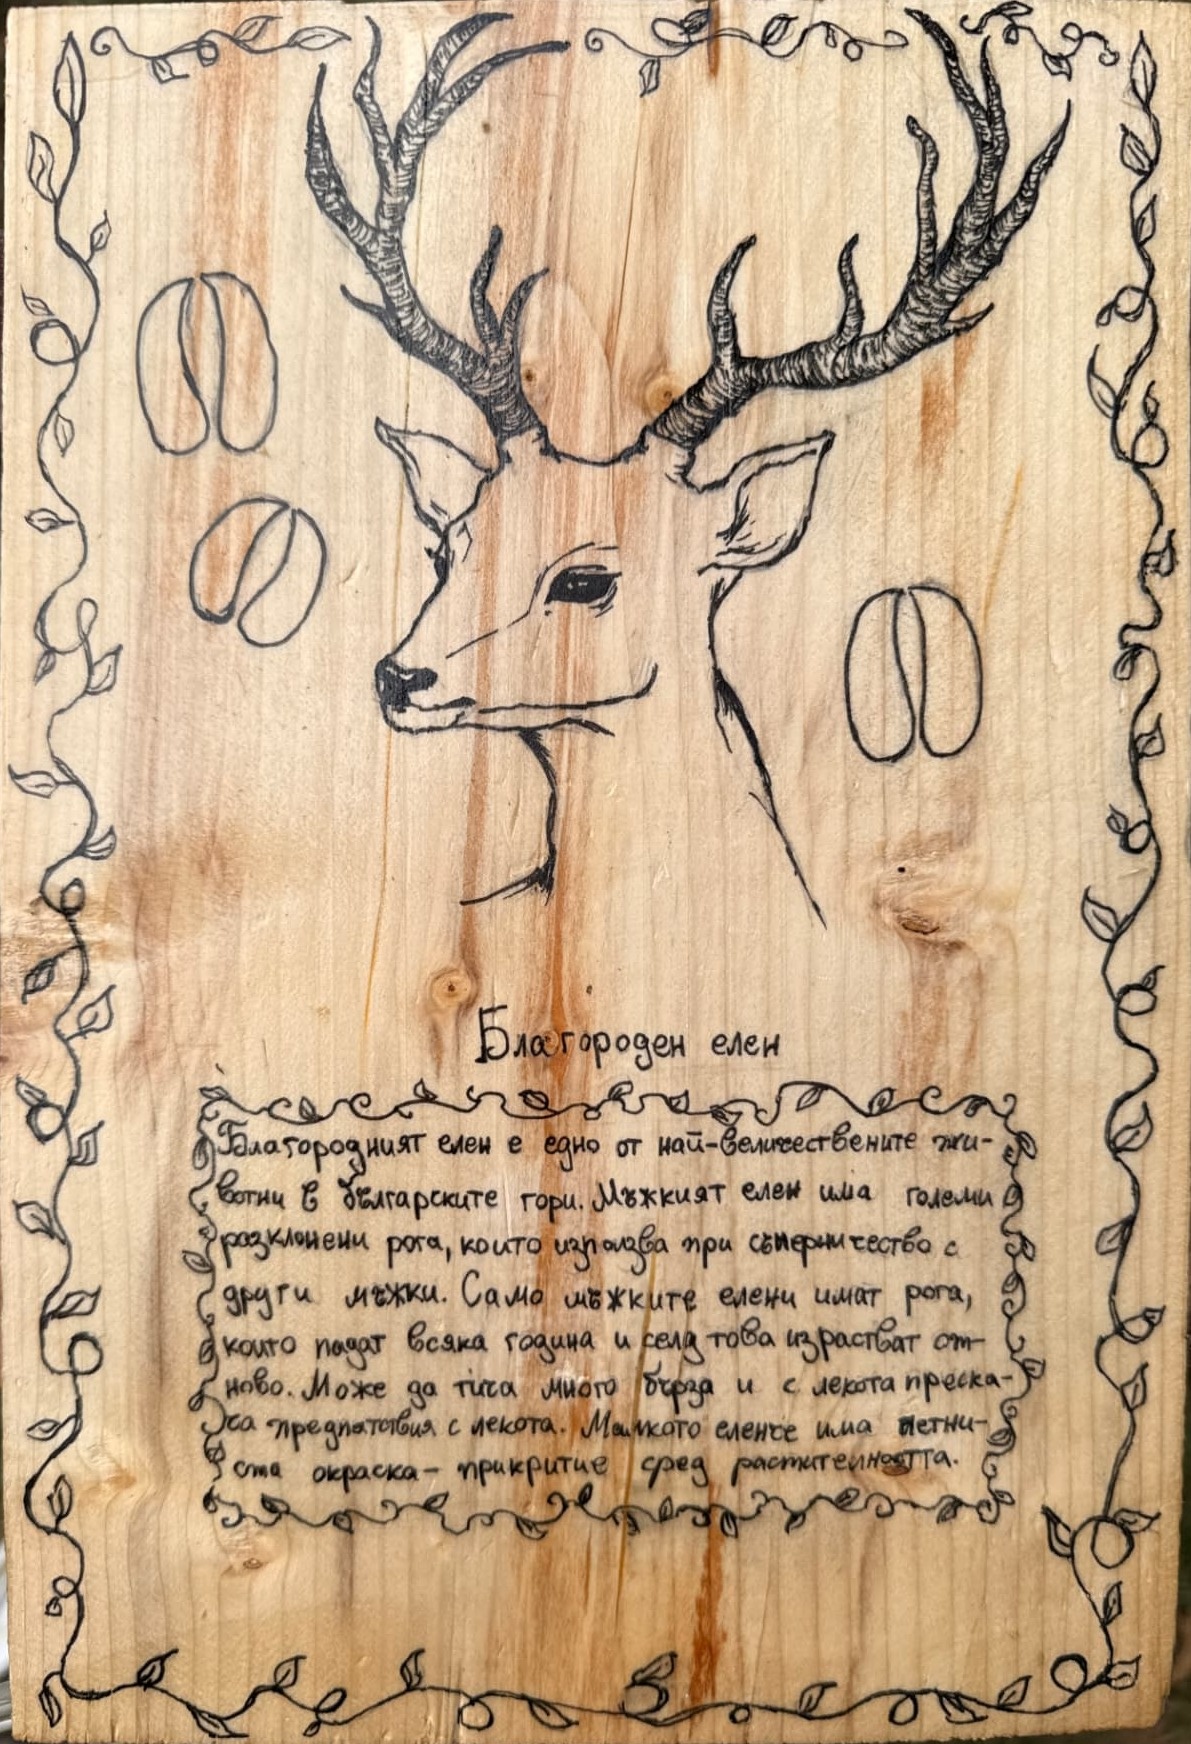 Благороден елен
Благородният елен е едно от най-величествените жи-
вотни в българските гори. Мъжкият елен има големи
разклонени рога, които използва при съперничество с
други мъжки. Само мъжките елени имат рога,
които падат всяка година и след това израстват от-
ново. Може да тича много бърза и с лекота преска-
ча предпатствия с лекота. Малкото еленче има петни-
ста окраска- прикритие сред растителността.